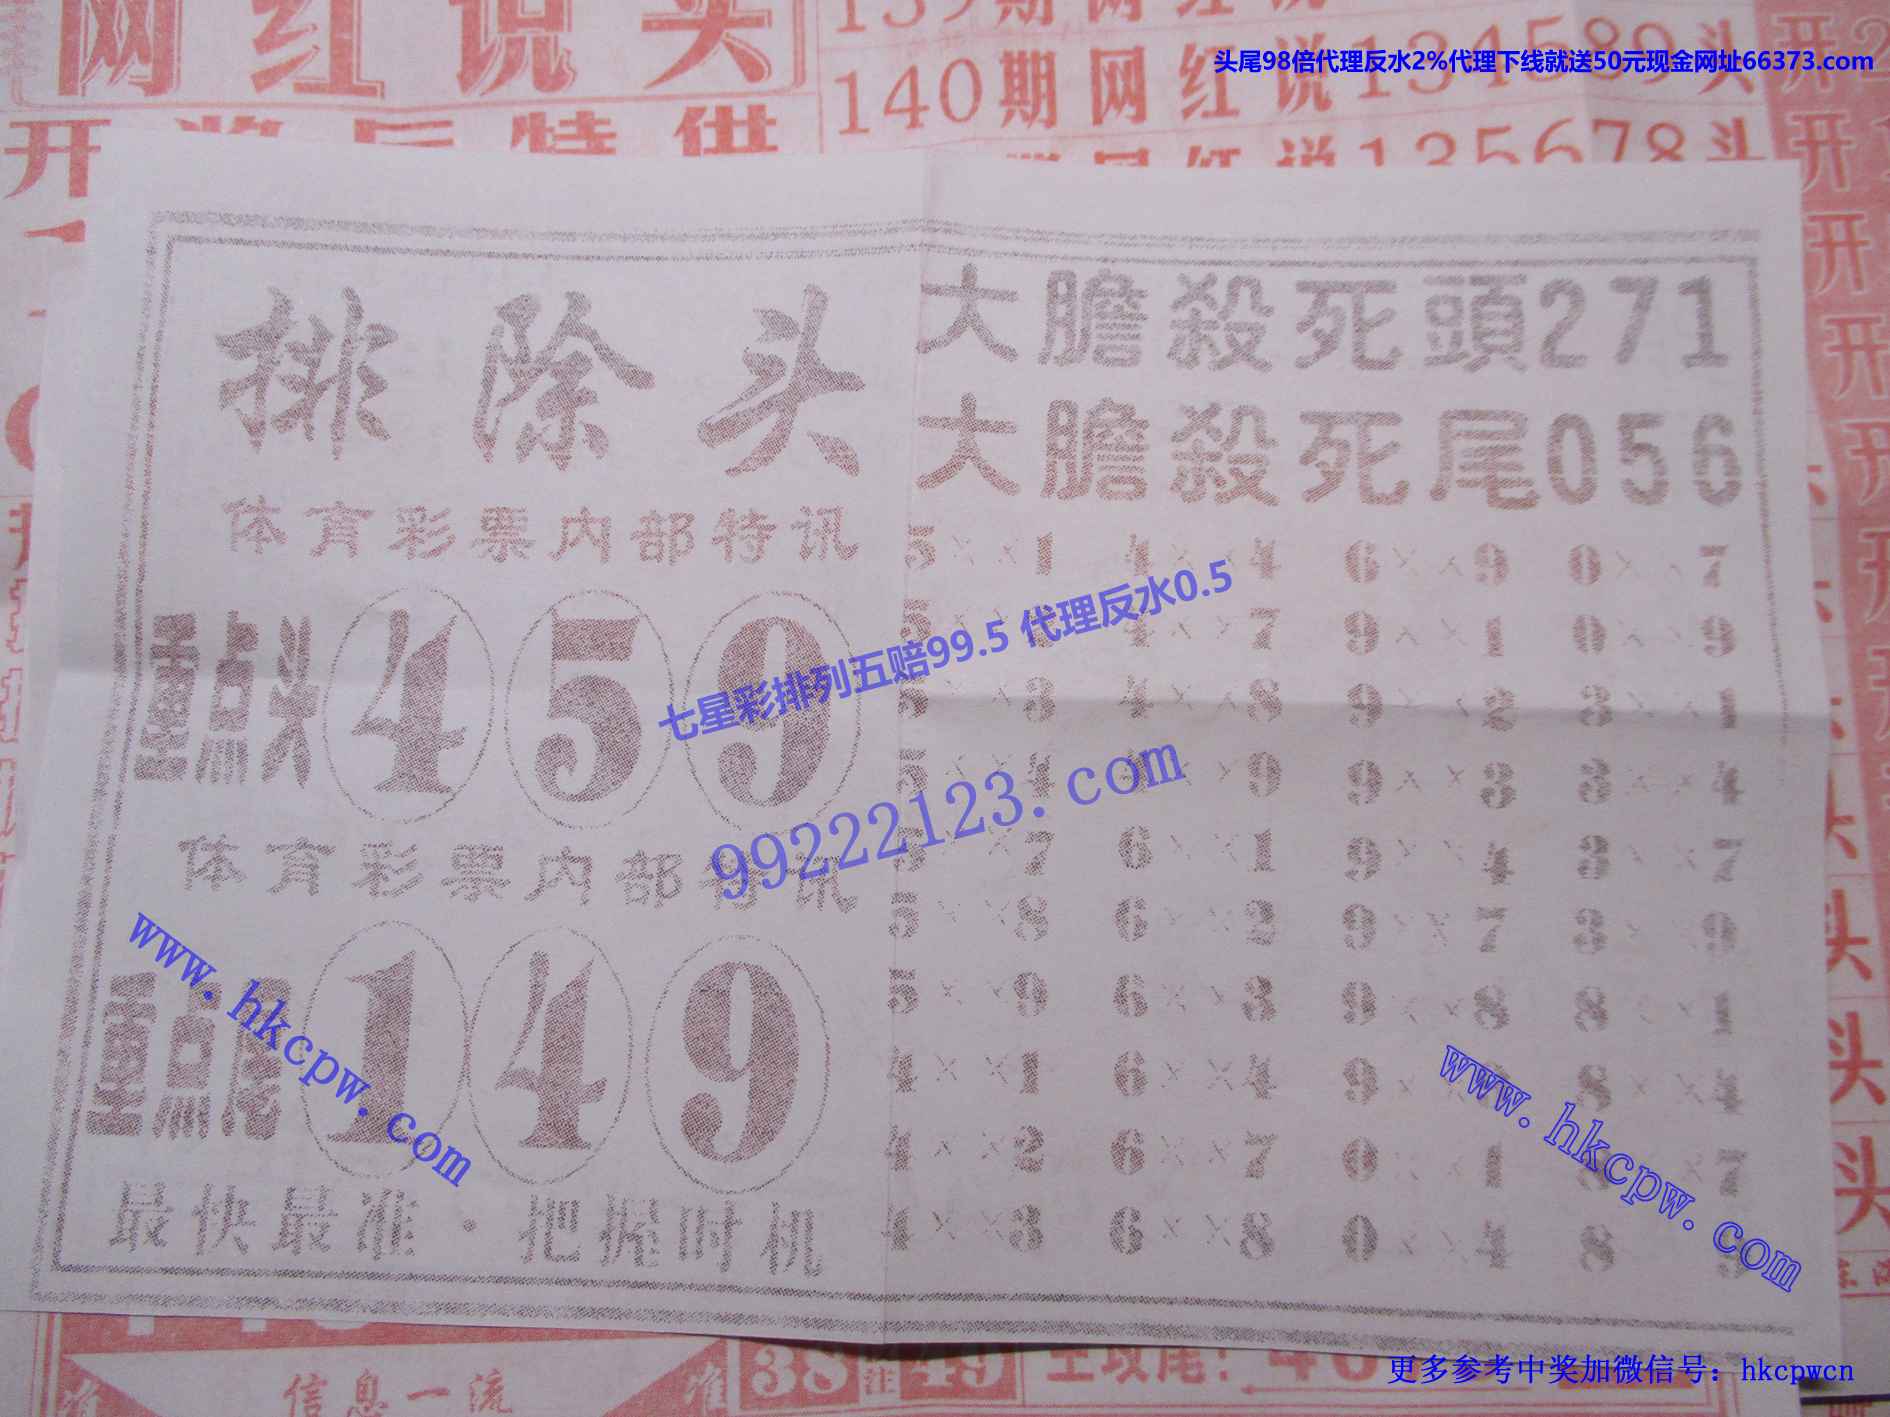 网红说头
140期网红说134589头
头尾98倍代理反水2%代理下线就送50元现金网址66373.com
135678头
排除头
体育彩票内部特讯
重点头459
体育彩票内部特讯
重点尾149
最快最准·把握时机
大膽殺死頭271
大膽殺死尾056
5××1 4××4 6××9 0××7
4××7 9××1 0××9
5××3 4××8 9××2 3××1
5××4 4××9 9××3 3××4
5××7 6××1 9××4 3××7
5××8 6××2 9××7 3××9
5××9 6××3 9××8 8××1
4××1 6××4 9×× 8××4
4××2 6××7 0××1
4××3 6××8 0××4 8
七星彩排列五赔99.5 代理反水0.5
99222123.com
www.hkcpw.com
www.hkcpw.com
38注49
信息一流
更多参考中奖加微信号：hkcpwcn